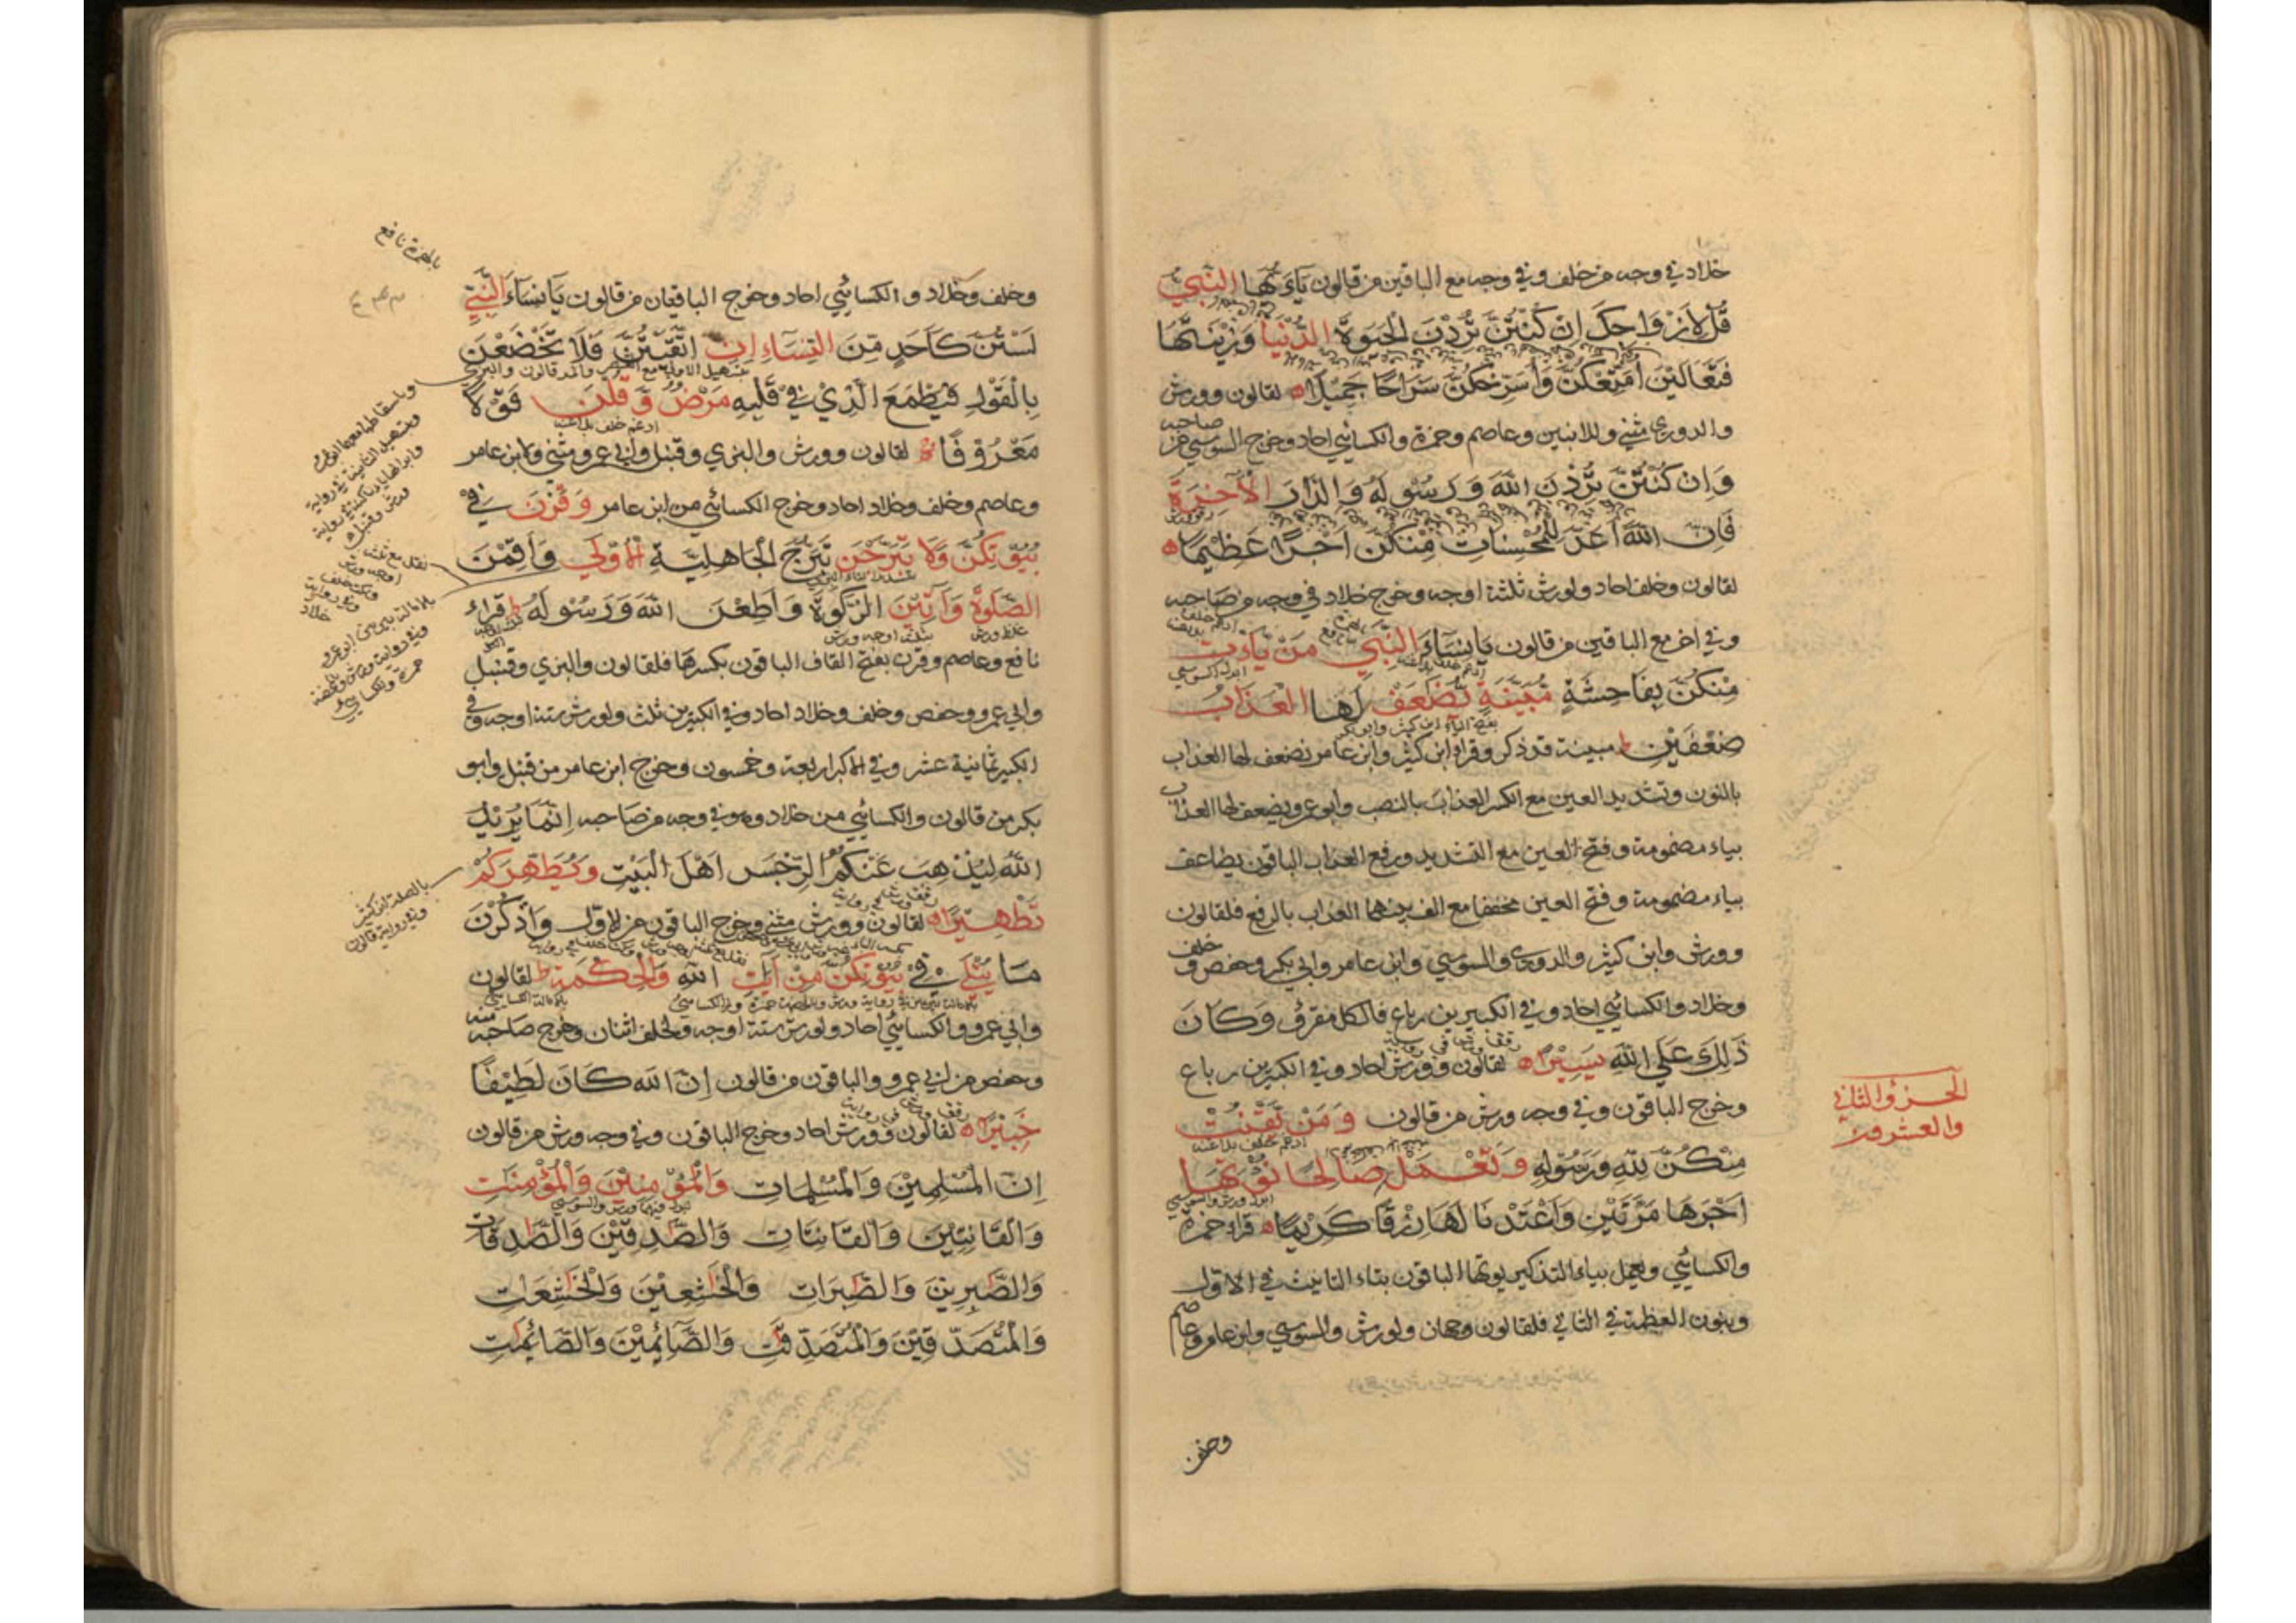 خلاد في وجه من خلف وفي وجه مع الباقين من قالون يَآءَيُّهَا النَّبِيُّ
قُلْ لِاَزْوَاجِكَ اِنْ كُنْتُنَّ تُرِدْنَ الْحَيَوةَ الدُّنْيَا وَزِيْنَتَهَا
فَتَعَالَيْنَ اُمَتِّعْكُنَّ وَاُسَرِّحْكُنَّ سَرَاحًا جَمِيْلًا لقالون وورش
والدوري مثنى وللابنين وعاصم وحمزة والكسائي احاد وخرج السوسي من صاحبه
وَاِنْ كُنْتُنَّ تُرِدْنَ اللّٰهَ وَرَسُوْلَهُ وَالدَّارَ الْآخِرَةَ
فَاِنَّ اللّٰهَ اَعَدَّ لِلْمُحْسِنَاتِ مِنْكُنَّ اَجْرًا عَظِيْمًا
لقالون وخلف احاد ولورش ثلثة اوجه وخرج خلاد في وجه من صاحبه
وفي اخر مع الباقين من قالون يَا نِسَآءَ النَّبِيِّ مَنْ يَّأْتِ
مِنْكُنَّ بِفَاحِشَةٍ مُبَيِّنَةٍ تُضٰعَفْ لَهَا الْعَذَابُ
ضِعْفَيْنِ مبينة قد ذكر وقراء ابن كثير وابن عامر نضعف لها العذاب
بالنون وتشديد العين مع الكسر العذاب بالنصب وابو عمرو يضعف لها العذاب
بياء مضمومة وفتح العين مع التشديد ورفع العذاب الباقون يضاعف
بياء مضمومة وفتح العين مخففا مع الف بينهما العذاب بالرفع فلقالون
وورش وابن كثير والدوري والسوسي وابن عامر وابي بكر وحفص وخلف
وخلاد والكسائي احاد وفي الكبيرين رباع فالكل مقرؤ وَكَانَ
ذٰلِكَ عَلَي اللّٰهِ يَسِيْرًا لقالون وورش احاد وفي الكبيرين رباع
وخرج الباقون وفي وجه ورش من قالون وَمَنْ يَّقْنُتْ
مِنْكُنَّ لِلّٰهِ وَرَسُوْلِهِ وَتَعْمَلْ صَالِحًا نُؤْتِهَا
اَجْرَهَا مَرَّتَيْنِ وَاَعْتَدْنَا لَهَا رِزْقًا كَرِيْمًا قراء حمزة
والكسائي ويعمل بياء التذكير يوتها الباقون بتاء التانيث في الاول
وبنون العظمة في الثاني فلقالون وجهان ولورش والسوسي وابن عامر وعاصم
وخلف
الجزؤ الثاني
والعشرون
وخلف وخلاد والكسائي احاد وخرج الباقيان من قالون يَا نِسَآءَ النَّبِيِّ
لَسْتُنَّ كَاَحَدٍ مِّنَ النِّسَآءِ اِنِ اتَّقَيْتُنَّ فَلَا تَخْضَعْنَ
بِالْقَوْلِ فَيَطْمَعَ الَّذِيْ فِيْ قَلْبِهِ مَرَضٌ وَّقُلْنَ قَوْلًا
مَعْرُوْفًا لقالون وورش والبزي وقنبل وابي عمرو مثنى ولابن عامر
وعاصم وخلف وخلاد احاد وخرج الكسائي من ابن عامر وَقَرْنَ فِيْ
بُيُوْتِكُنَّ وَلَا تَبَرَّجْنَ تَبَرُّجَ الْجَاهِلِيَّةِ الْاُوْلَي وَاَقِمْنَ
الصَّلٰوةَ وَآتِيْنَ الزَّكٰوةَ وَاَطِعْنَ اللّٰهَ وَرَسُوْلَهُ قراء
نافع وعاصم وقرن بفتح القاف الباقون بكسرها فلقالون والبزي وقنبل
وابي عمرو وحفص وخلف وخلاد احاد وفي الكبيرين ثلث ولورش ستة اوجه وفي
الكبير ثمانية عشر وفي الاكبر اربعة وخمسون وخرج ابن عامر من قنبل وابو
بكر من قالون والكسائي من خلاد وهو في وجه من صاحبه اِنَّمَا يُرِيْدُ
اللّٰهُ لِيُذْهِبَ عَنْكُمُ الرِّجْسَ اَهْلَ الْبَيْتِ وَيُطَهِّرَكُمْ
تَطْهِيْرًا لقالون وورش مثنى وخرج الباقون من الاول وَاذْكُرْنَ
مَا يُتْلَي فِيْ بُيُوْتِكُنَّ مِنْ آيٰتِ اللّٰهِ وَالْحِكْمَةِ لقالون
وابي عمرو والكسائي احاد ولورش ستة اوجه ولخلف اثنان وخرج صاحبه منه
وحفص من ابي عمرو والباقون من قالون اِنَّ اللّٰهَ كَانَ لَطِيْفًا
خَبِيْرًا لقالون وورش احاد وخرج الباقون وفي وجه ورش من قالون
اِنَّ الْمُسْلِمِيْنَ وَالْمُسْلِمَاتِ وَالْمُؤْمِنِيْنَ وَالْمُؤْمِنٰتِ
وَالْقَانِتِيْنَ وَالْقَانِتَاتِ وَالصّٰدِقِيْنَ وَالصّٰدِقَاتِ
وَالصّٰبِرِيْنَ وَالصّٰبِرَاتِ وَالْخٰشِعِيْنَ وَالْخٰشِعٰتِ
وَالْمُتَصَدِّقِيْنَ وَالْمُتَصَدِّقٰتِ وَالصَّآئِمِيْنَ وَالصَّائِمٰتِ
بالهمزة نافع
بالصلة ابن كثير
وفي رواية قالون